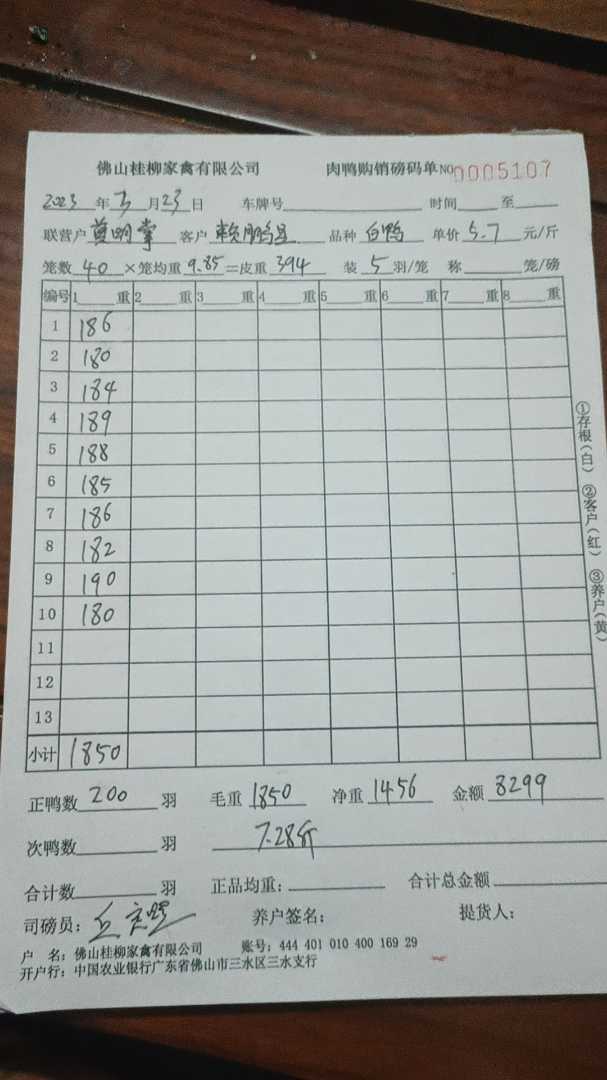 佛山桂柳家禽有限公司 肉鸭购销磅码单 NO 0005107
2023 年 3 月 23 日 车牌号 时间 至
联营户 莫明掌 客户 赖鹏昌 品种 白鸭 单价 5.7 元/斤
笼数 40 ×笼均重 9.85 =皮重 394 装 5 羽/笼 称 笼/磅
编号 1 重 2 重 3 重 4 重 5 重 6 重 7 重 8 重
1 186
2 180
3 184
4 189
5 188
6 185
7 186
8 182
9 190
10 180
11
12
13
小计 1850
正鸭数 200 羽 毛重 1850 净重 1456 金额 8299
次鸭数 羽 7.28斤
合计数 羽 正品均重: 合计总金额
司磅员: 养户签名: 提货人:
户 名: 佛山桂柳家禽有限公司 账号: 444 401 010 400 169 29
开户行: 中国农业银行广东省佛山市三水区三水支行
①存根(白) ②客户(红) ③养户(黄)